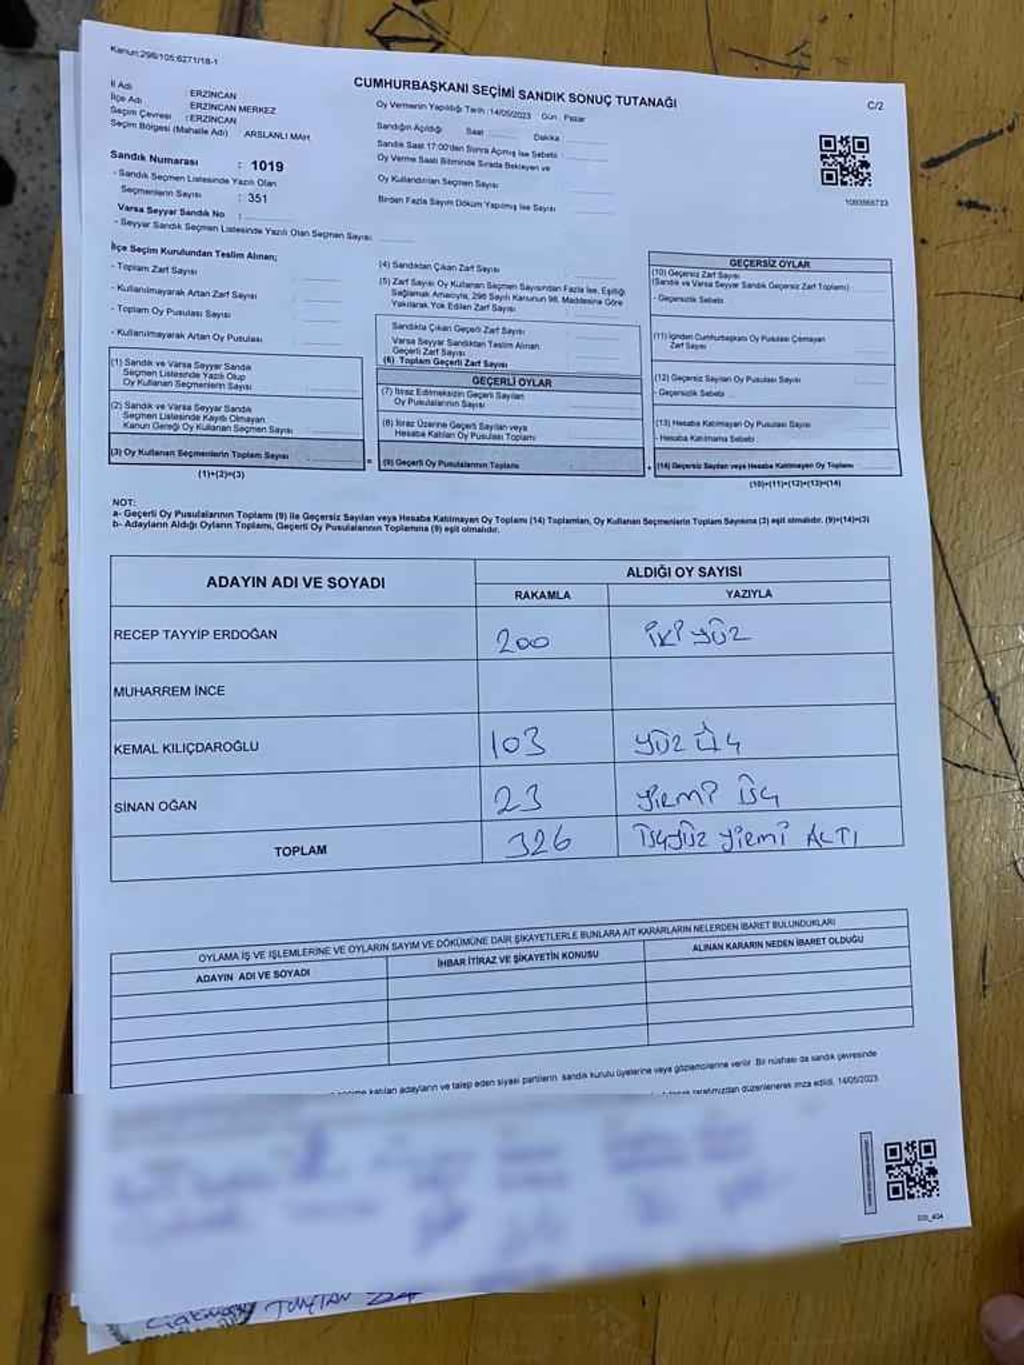 Kanun:298/105:6271/18-1
CUMHURBAŞKANI SEÇİMİ SANDIK SONUÇ TUTANAĞI
C/2
İl Adı : ERZİNCAN
İlçe Adı : ERZİNCAN MERKEZ
Seçim Çevresi : ERZİNCAN
Seçim Bölgesi (Mahalle Adı) : ARSLANLI MAH
Oy Vermenin Yapıldığı Tarih :14/05/2023 Gün : Pazar
Sandığın Açıldığı Saat Dakika :
Sandık Saat 17:00'den Sonra Açılmış İse Sebebi :
Oy Verme Saati Bitiminde Sırada Bekleyen ve
Oy Kullandırılan Seçmen Sayısı
Birden Fazla Sayım Döküm Yapılmış İse Sayısı
Sandık Numarası : 1019
- Sandık Seçmen Listesinde Yazılı Olan
Seçmenlerin Sayısı : 351
Varsa Seyyar Sandık No :
- Seyyar Sandık Seçmen Listesinde Yazılı Olan Seçmen Sayısı:
İlçe Seçim Kurulundan Teslim Alınan;
- Toplam Zarf Sayısı
- Kullanılmayarak Artan Zarf Sayısı
- Toplam Oy Pusulası Sayısı
- Kullanılmayarak Artan Oy Pusulası
(1) Sandık ve Varsa Seyyar Sandık
Seçmen Listesinde Yazılı Olup
Oy Kullanan Seçmenlerin Sayısı
(2) Sandık ve Varsa Seyyar Sandık
Seçmen Listesinde Kayıtlı Olmayan
Kanun Gereği Oy Kullanan Seçmen Sayısı
(3) Oy Kullanan Seçmenlerin Toplam Sayısı
(1)+(2)=(3)
(4) Sandıktan Çıkan Zarf Sayısı
(5) Zarf Sayısı Oy Kullanan Seçmen Sayısından Fazla İse, Eşitliği
Sağlamak Amacıyla, 298 Sayılı Kanunun 98. Maddesine Göre
Yakılarak Yok Edilen Zarf Sayısı
Sandıkta Çıkan Geçerli Zarf Sayısı
Varsa Seyyar Sandıktan Teslim Alınan
Geçerli Zarf Sayısı
(6) Toplam Geçerli Zarf Sayısı
GEÇERLİ OYLAR
(7) İtiraz Edilmeksizin Geçerli Sayılan
Oy Pusulalarının Sayısı
(8) İtiraz Üzerine Geçerli Sayılan veya
Hesaba Katılan Oy Pusulası Toplamı
= (9) Geçerli Oy Pusulalarının Toplamı
GEÇERSİZ OYLAR
(10) Geçersiz Zarf Sayısı
(Sandık ve Varsa Seyyar Sandık Geçersiz Zarf Toplamı)
- Geçersizlik Sebebi
(11) İçinden Cumhurbaşkanı Oy Pusulası Çıkmayan
Zarf Sayısı
(12) Geçersiz Sayılan Oy Pusulası Sayısı
- Geçersizlik Sebebi
(13) Hesaba Katılmayan Oy Pusulası Sayısı
- Hesaba Katılmama Sebebi
+ (14) Geçersiz Sayılan veya Hesaba Katılmayan Oy Toplamı
(10)+(11)+(12)+(13)=(14)
NOT:
a- Geçerli Oy Pusulalarının Toplamı (9) ile Geçersiz Sayılan veya Hesaba Katılmayan Oy Toplamı (14) Toplamları, Oy Kullanan Seçmenlerin Toplam Sayısına (3) eşit olmalıdır. (9)+(14)=(3)
b- Adayların Aldığı Oyların Toplamı, Geçerli Oy Pusulalarının Toplamına (9) eşit olmalıdır.
ADAYIN ADI VE SOYADI
ALDIĞI OY SAYISI
RAKAMLA YAZIYLA
RECEP TAYYİP ERDOĞAN 200 İKİ YÜZ
MUHARREM İNCE
KEMAL KILIÇDAROĞLU 103 YÜZ ÜÇ
SİNAN OĞAN 23 yirmi üç
TOPLAM 326 üçyüz yirmi ALTI
OYLAMA İŞ VE İŞLEMLERİNE VE OYLARIN SAYIM VE DÖKÜMÜNE DAİR ŞİKAYETLERLE BUNLARA AİT KARARLARIN NELERDEN İBARET BULUNDUKLARI
ADAYIN ADI VE SOYADI İHBAR İTİRAZ VE ŞİKAYETİN KONUSU ALINAN KARARIN NEDEN İBARET OLDUĞU
katılan adayların ve talep eden siyasi partilerin sandık kurulu üyelerine veya gözlemcilerine verilir. Bir nüshası da sandık çevresinde
tarafımızdan düzenlenerek imza edildi. 14/05/2023